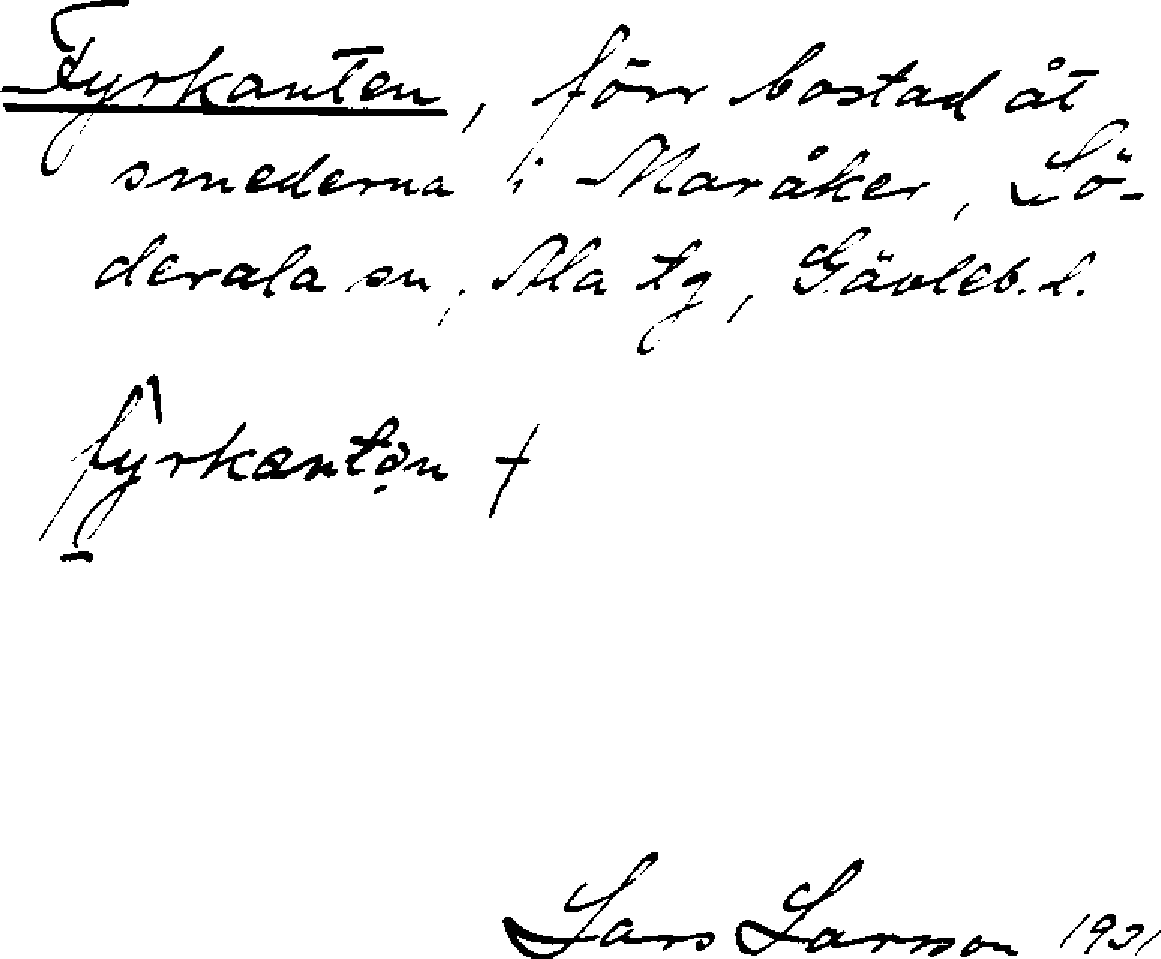 Fyrkanten, förr bostad åt
smederna i Maråker, Sö-
derala sn, Ala tg, Gävleb. l.
fyrkantən +
Lars Larsson 1931